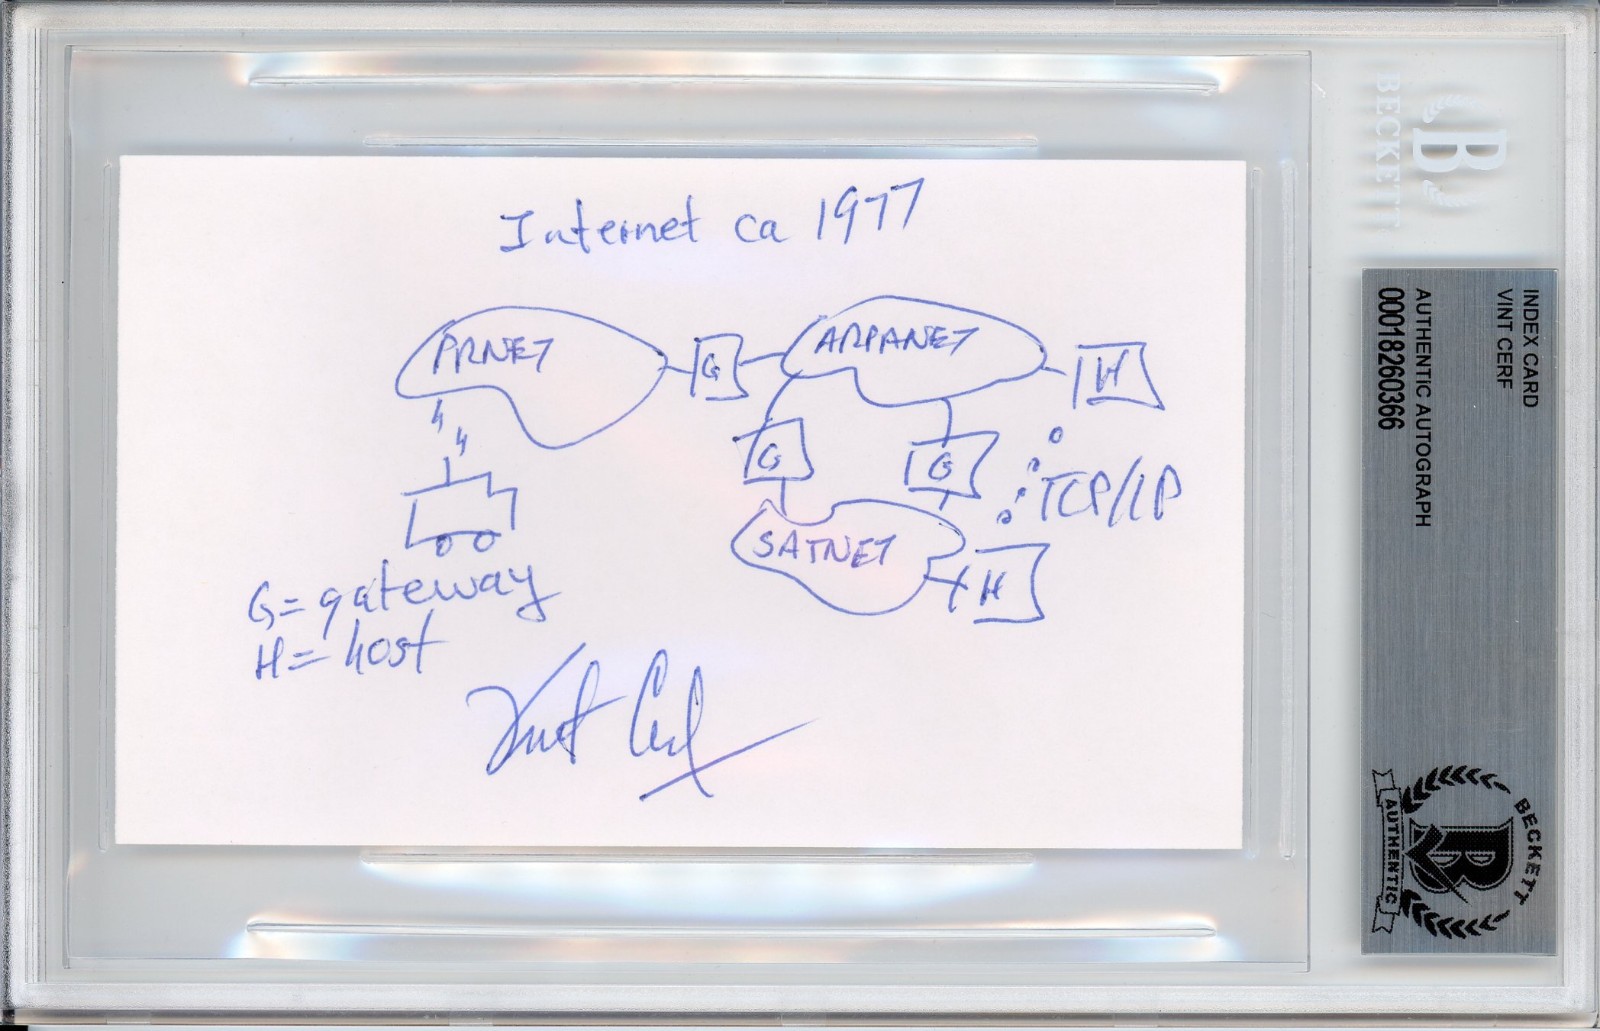 Internet ca 1977
PRNET
G
ARPANET
H
G
G
TCP/IP
SATNET
H
G = gateway
H = host
Vint Cerf
BECKETT
B
INDEX CARD
VINT CERF
AUTHENTIC AUTOGRAPH
00018260366
BECKETT
B
AUTHENTIC